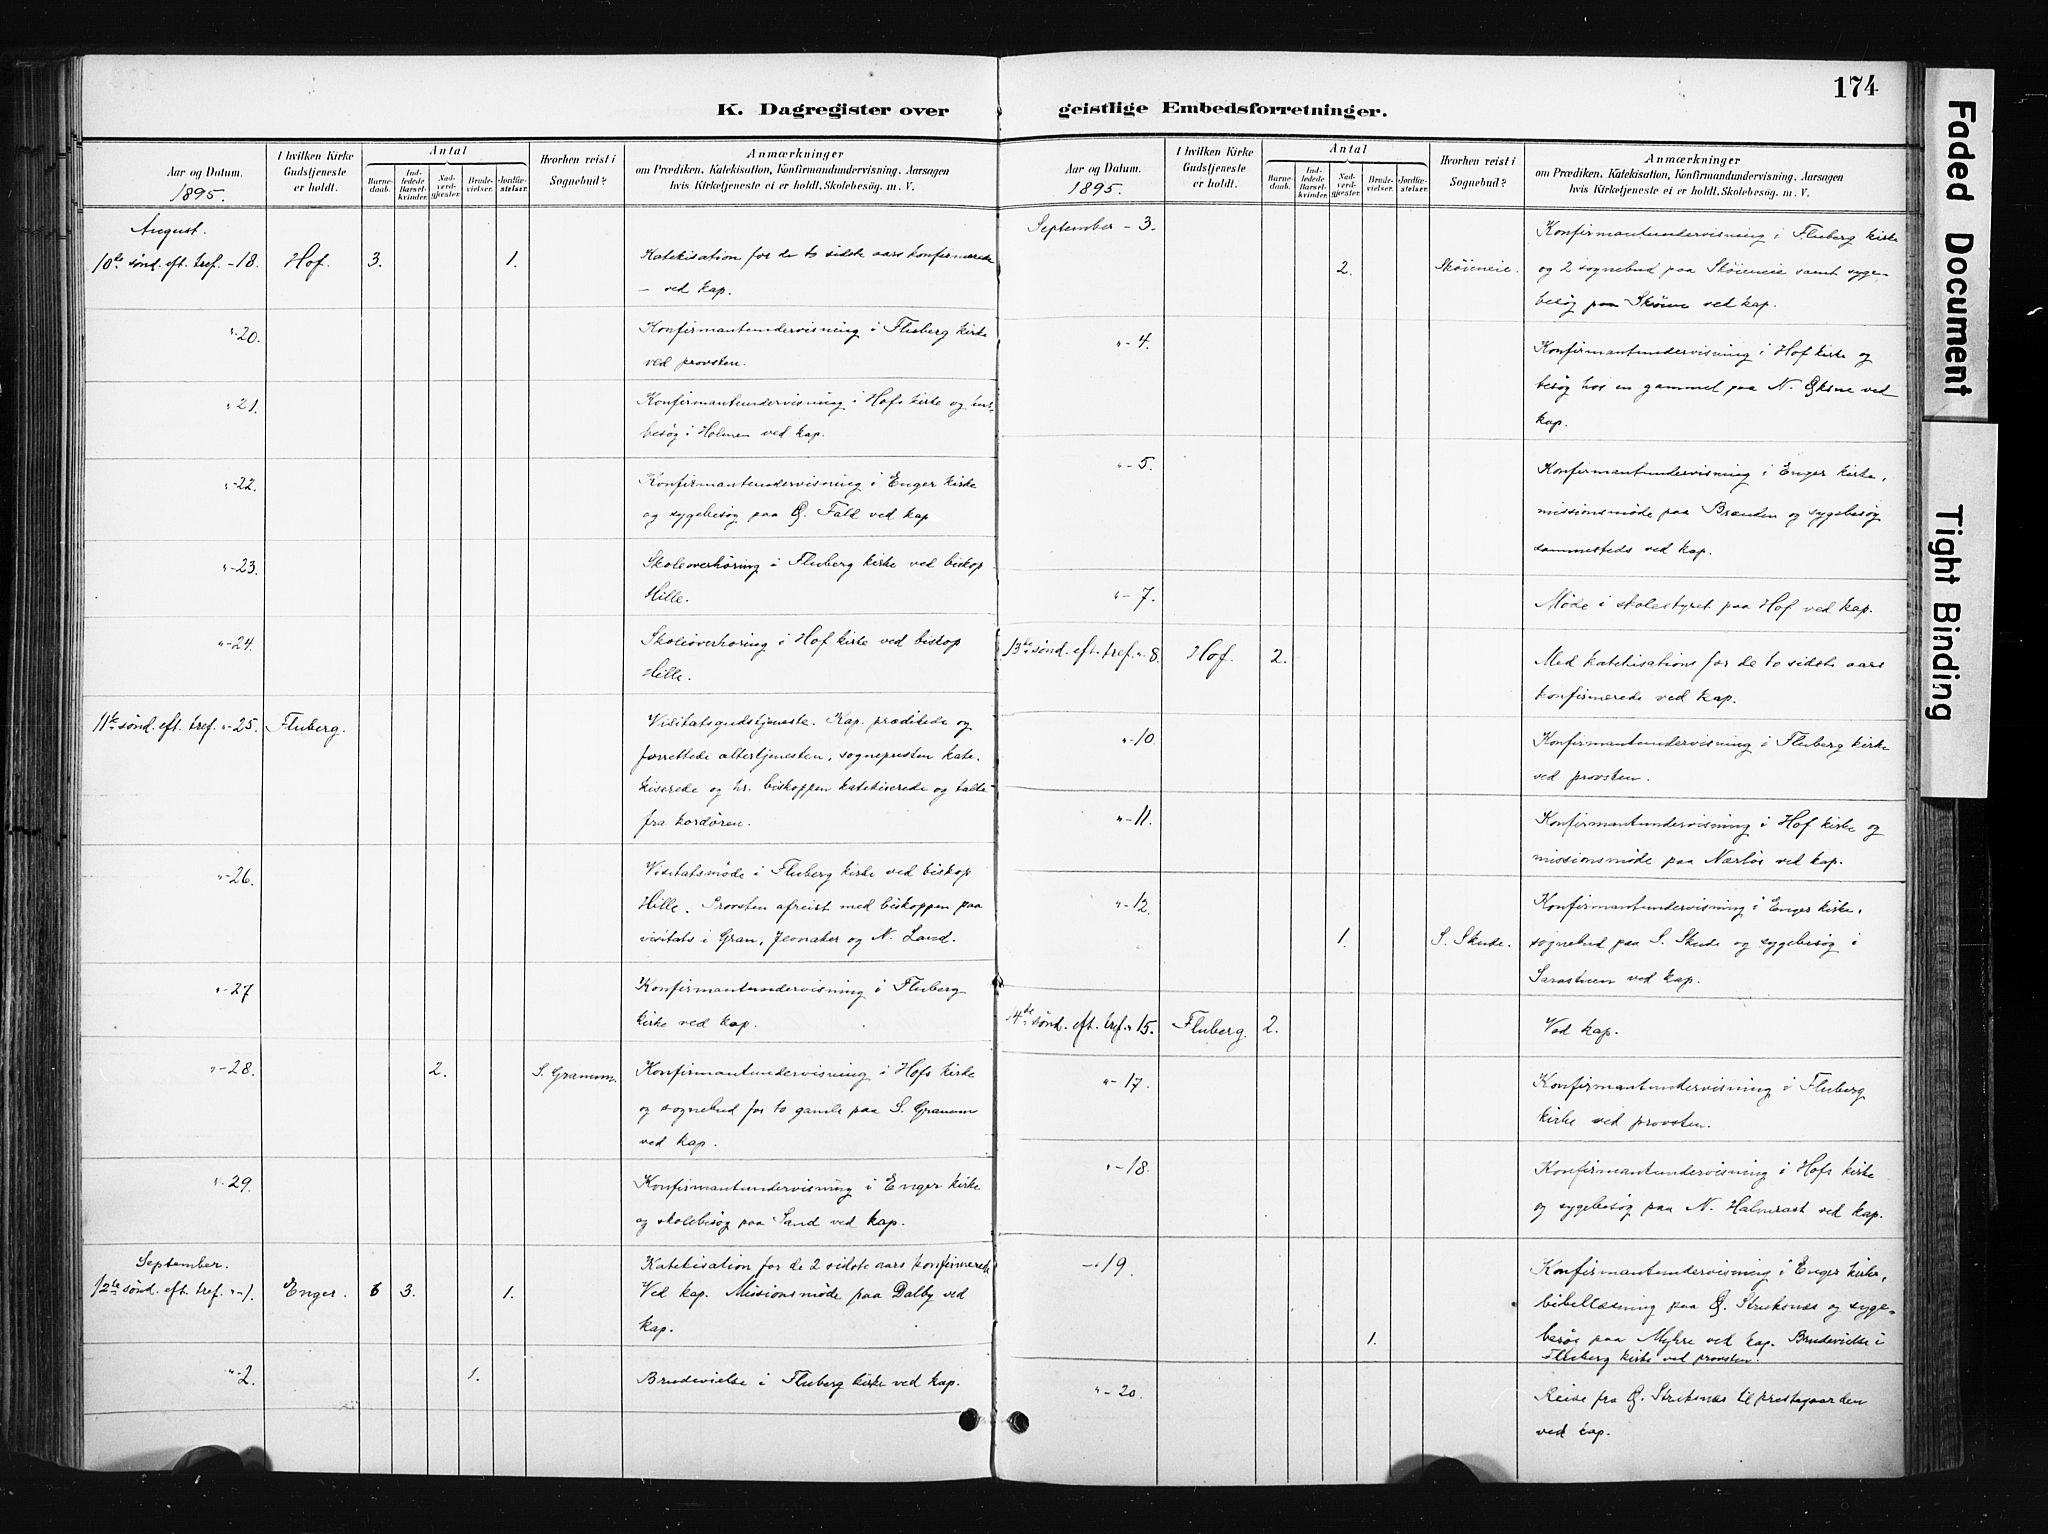 174
K. Dagregister over
geistlige Embedsforretninger.
Faded Document
Tight Binding
Aar og Datum.
1895.
I hvilken Kirke
Gudstjeneste
er holdt.
Antal
Barne-
daab.
Ind-
ledede
Barsel-
kvinder.
Nad-
verd-
gjester.
Brude-
vielser.
Jordfæ-
stelser.
Hvorhen reist i
Sognebud?
Anmærkninger
om Prædiken, Katekisation, Konfirmandundervisning, Aarsagen
hvis Kirketjeneste ei er holdt, Skolebesøg. m. V.
August.
10de sønd. eft. tref. -18. Hof. 3. 1. Katekisation for de to sidste aars konfirmerede
– ved kap.
"-20. Konfirmantundervisning i Fluberg kirke
ved provsten.
"-21. Konfirmantundervisning i Hofs kirke og
besøg i Holmen ved kap.
"-22. Konfirmantundervisning i Enger kirke
og sygebesøg paa Ø. Fald ved kap
"-23. Skoleoverhøring i Fluberg kirke ved biskop
Hille.
"-24. Skoleoverhøring i Hof kirke ved biskop
Hille.
11te sønd. eft. tref. "-25. Fluberg. Visitatsgudstjeneste. Kap. prædikede og
forrettede altertjenesten, sognepresten kate-
kiserede og hr. biskoppen katekiserede og talte
fra kordøren.
"-26. Visitatsmøde i Fluberg kirke ved biskop
Hille. Provsten afreist med biskoppen paa
visitats i Gran, Jevnaker og N. Land.
"-27 Konfirmantundervisning i Fluberg
kirke ved kap.
"-28. 2. S. Granum. Konfirmantundervisning i Hofs kirke
og sognebud for to gamle paa S. Granum
ved kap.
"-29. Konfirmantundervisning i Enger kirke
og skolebesøg paa Sand ved kap.
September.
12te sønd. eft. tref. "-1. Enger. 6 3. 1. Katekisation for de 2 sidste aars konfirmerede
Ved kap. Missionsmøde paa Dalby ved
kap.
"-2. 1. Brudevielse i Fluberg kirke ved kap.
Aar og Datum.
1895.
I hvilken Kirke
Gudstjeneste
er holdt.
Antal
Barne-
daab.
Ind-
ledede
Barsel-
kvinder.
Nad-
verd-
gjester.
Brude-
vielser.
Jordfæ-
stelser.
Hvorhen reist i
Sognebud?
Anmærkninger
om Prædiken, Katekisation, Konfirmandundervisning, Aarsagen
hvis Kirketjeneste ei er holdt, Skolebesøg. m. V.
September - 3. Konfirmantundervisning i Fluberg kirke
2. Skøieneie. og 2 sognebud paa Skøieneie samt syge-
besøg paa Skøien ved kap.
"-4. Konfirmantundervisning i Hof kirke og
besøg hos en gammel paa N. Øksne ved
kap.
"-5. Konfirmantundervisning i Enger kirke,
missionsmøde paa Brænden og sygebesøg
sammesteds ved kap.
"-7. Møde i skolestyret paa Hof ved kap.
13de sønd. eft. tref. "-8. Hof. 2. Med katekisations for de to sidste aars
konfirmerede ved kap.
"-10. Konfirmantundervisning i Fluberg kirke
ved provsten.
"-11. Konfirmantundervisning i Hof kirke og
missionsmøde paa Nærlos ved kap.
"-12. Konfirmantundervisning i Enger kirke,
1. S. Skute. sognebud paa S. Skute og sygebesøg i
Sarastuen ved kap.
14de sønd. eft. tref. "15. Fluberg. 2. Ved kap.
"-17. Konfirmantundervisning i Fluberg
kirke ved provsten.
"-18. Konfirmantundervisning i Hofs kirke
og sygebesøg paa N. Halmrast ved kap.
-"19. Konfirmantundervisning i Enger kirke,
bibellæsning paa Ø. Struksnæs og syge-
1. besøg paa Myhre ved kap. Brudevielse i
Fluberg kirke ved provsten.
"-20. Reise fra Ø. Struksnæs til prestegaarden
ved kap.